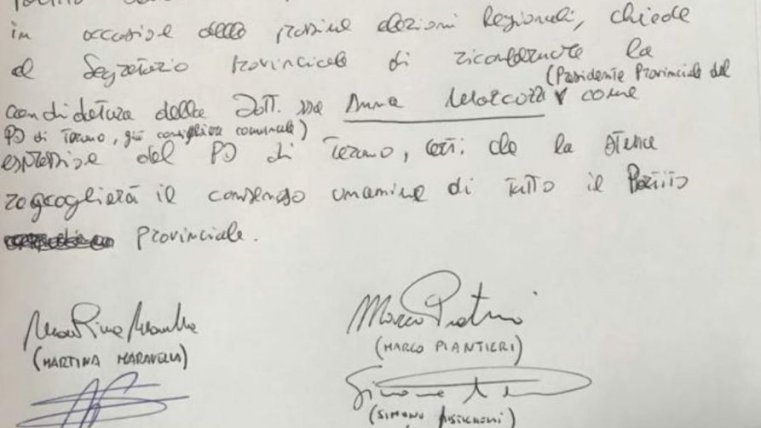 in occasione delle prossime elezioni Regionali, chiede
al Segretario Provinciale di riconfermare la
(Presidente Provinciale del
candidatura della Dott.ssa Anna Marcozzi come
PD di Teramo, già consigliera comunale)
espressione del PD di Teramo, certi che la stessa
raccoglierà il consenso unanime di tutto il Partito
Provinciale.
(MARTINA MARAVALLI)
Marco
(MARCO PIANTIERI)
Simone
(SIMONE